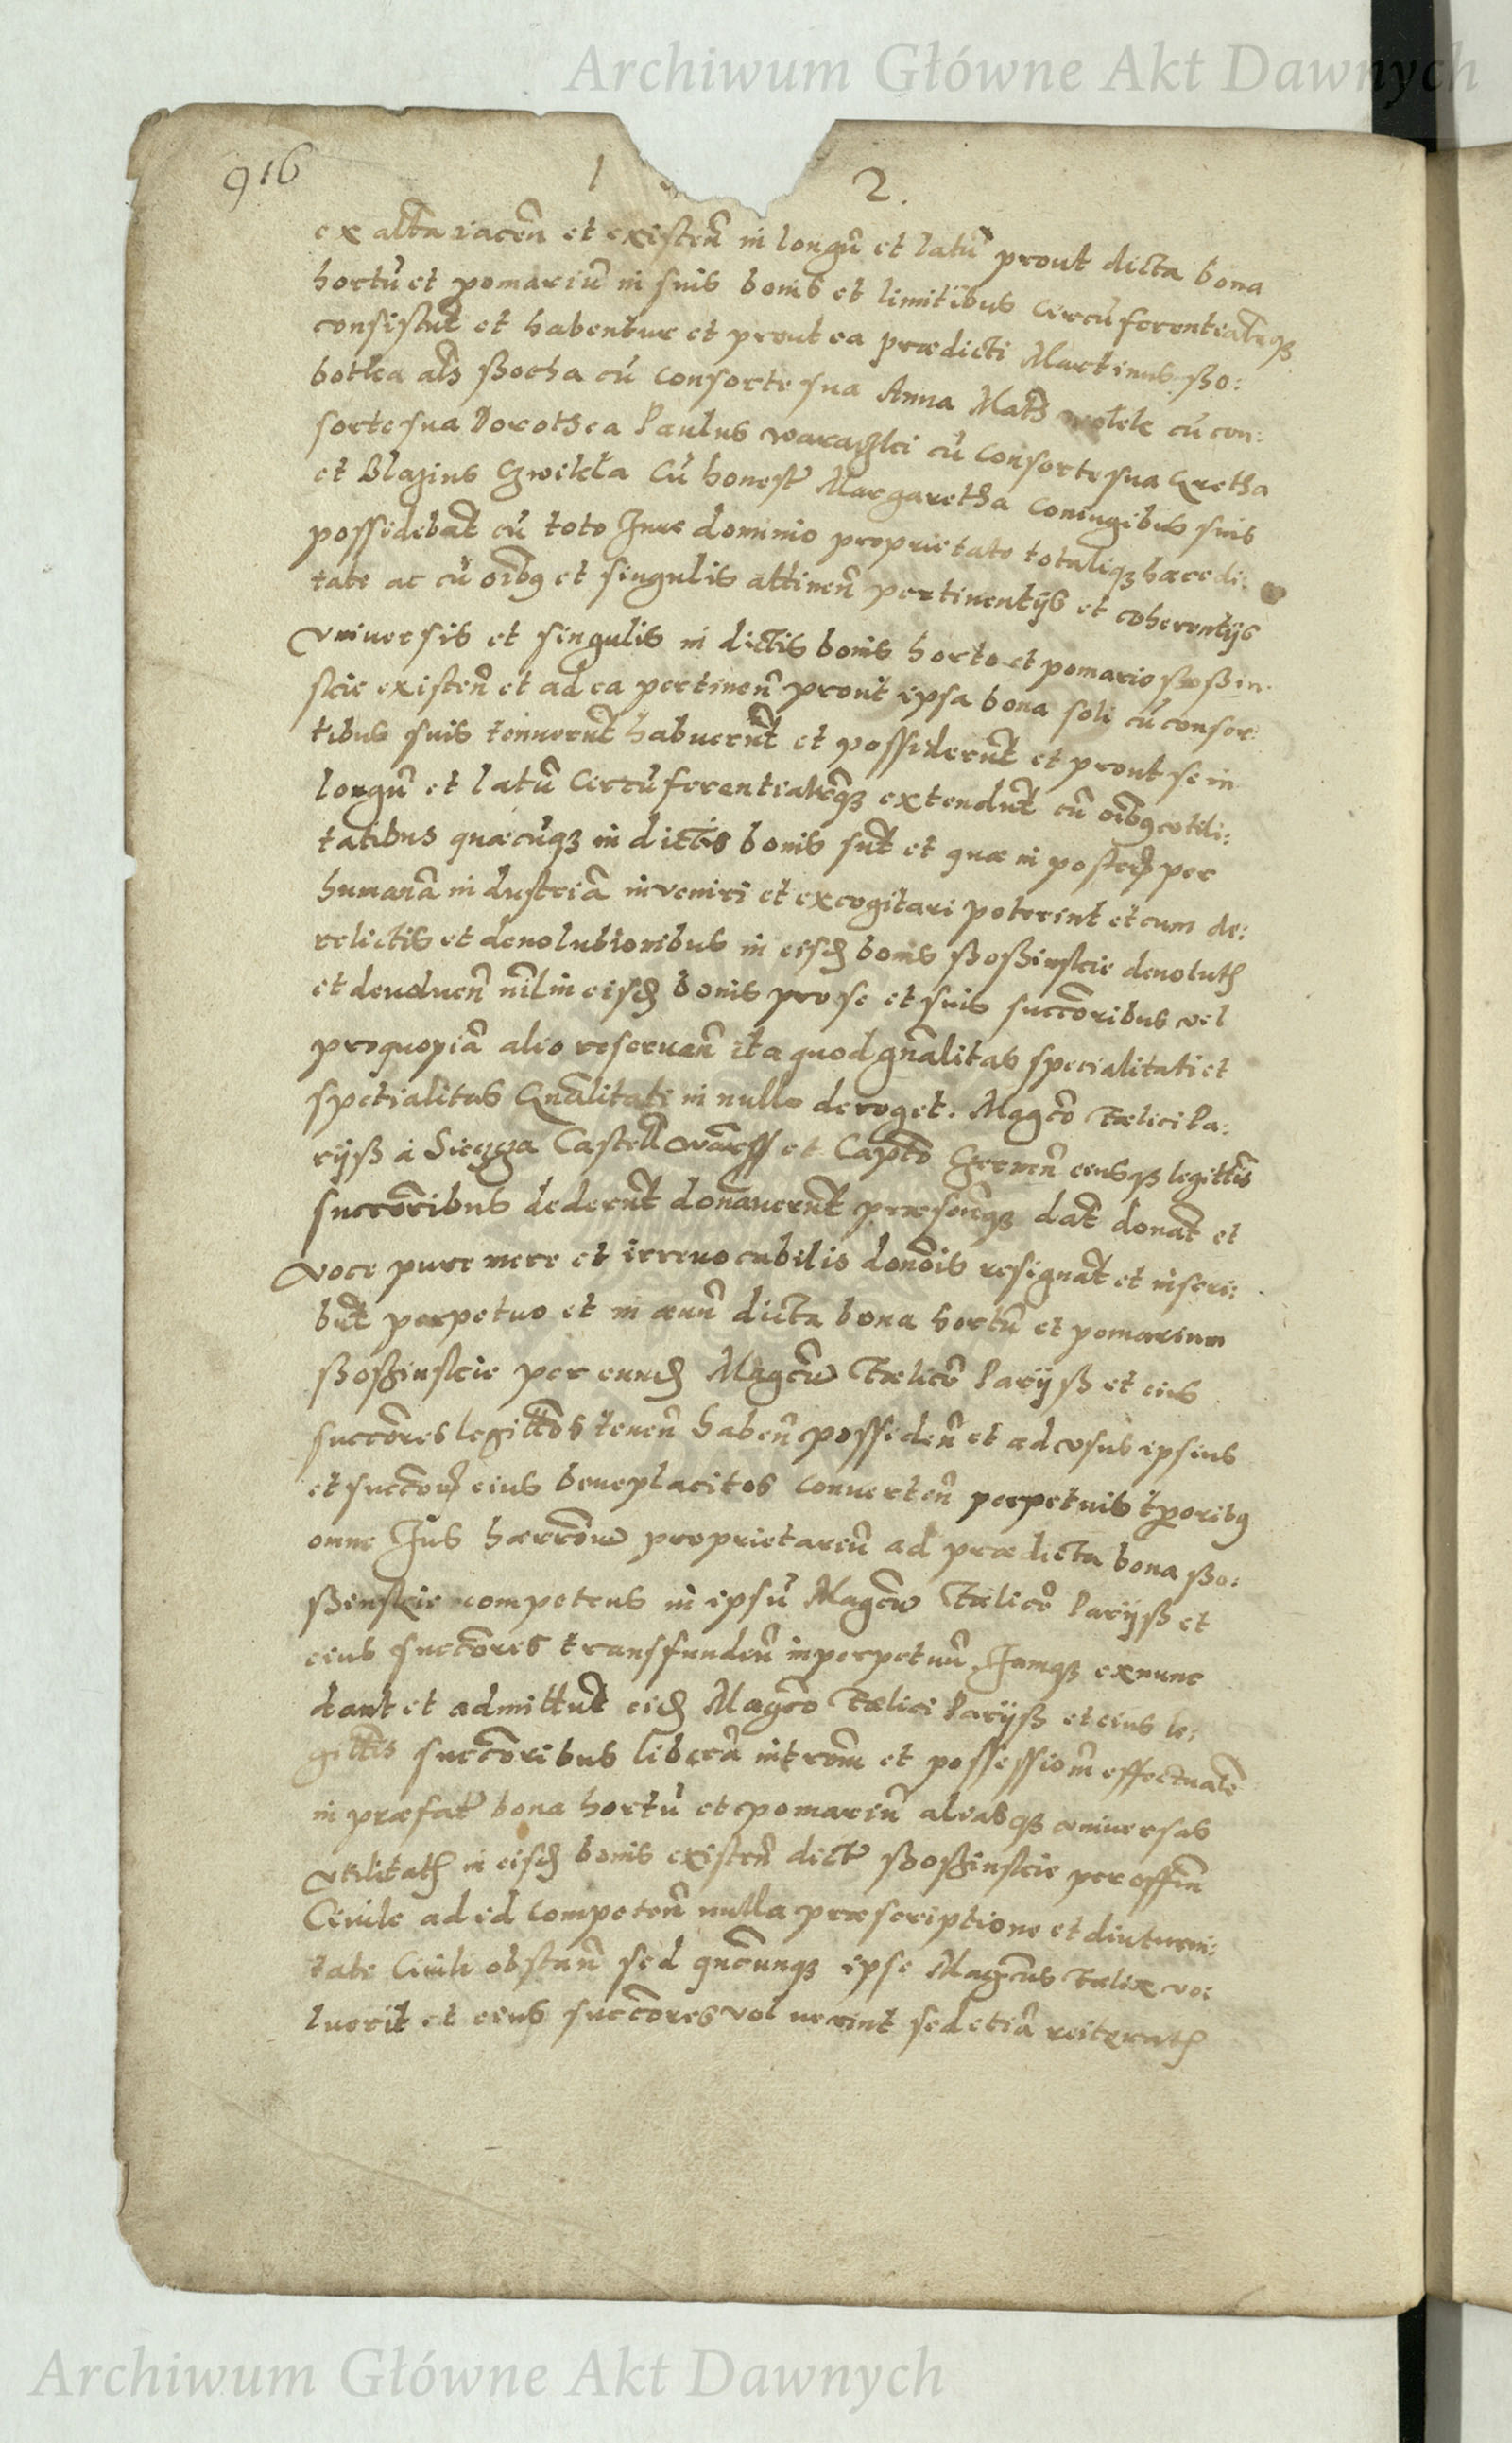 Archiwum Główne Akt Dawnych
916 1 2.
ex alt̄a iaceñ et existeñ in longũ et latũ prout dicta bona
hortũ et pomariũ in suis bonis et limitibus circũferentialq̃ʒ
consistũt et habentur et prout ea prædicti Martinus ßo:
botka al̃s ßocha cũ consorte sua Anna Math wolek cũ con:
sorte sua Dorothea Paulus waraßki cũ consorte sua Gretha
et Blazius Czwikla Cũ honest̃ Margaretha coniugibus suis
possidebãt cũ toto Jure dominio proprietate totaliqʒ hæredi:
tate ac cũ oĩbꝯ et singulis attineñ pertinentijs et coherentijs
Vniuersis et singulis in dictis bonis horto et pomario ßoßin
skie existeñ et ad ea pertineñ prout ipsa bona soli cũ consor:
tibus suis tenuerũt habuerũt et possiderũt et prout se in
longũ et latũ circũferentialẽqʒ extendũt cũ oĩbꝯ vtili:
tatibus quæcũqʒ in dictis bonis sũt et quæ in posterꝝ per
humanã industriã inveniri et excogitari poterint et cum de:
relictis et deuolutionibus in eisd bonis ßoßinskie deuolut
et deuolueñ nĩl in eisd bonis pro se et suis succõribus vel
pro quopiã alio reserueñ ita quod gñalitas specialitati et
spetialitas Gñalitati in nullo deroget. Magc̃o Fælici Pa:
rijß à Castell̃ et Capto Czerneñ eiusqʒ legitt̃is
succõribus dederũt donauerũt præseñqʒ dãt donãt et
voce pure mere et irreuocabilis donõis resignãt et inscri:
bũt perpetuo et in æuũ dicta bona hortũ et pomarium
ßoßinskie per eund Magc̃u Fælicẽ Parijß et eius
succõres legitt̃os teneñ habeñ possideñ et ad vsus ipsius
et succõrꝝ eius beneplacitos conuerteñ perpetuis tꝑoribꝯ
omne Jus proprietariũ ad prædicta bona ßo:
ßinskie competens in ipsũ Magc̃u Fælicẽ Parijß et
eius succõres transfundeñ in perpetuũ. Jamqʒ exnunc
dant et admittũt eid Magc̃o Fælici Parijß et eius le:
gitt̃is succõribus liberã intrõm et possessiõm effectualẽ
in præfat̃ bona hortũ et pomariũ aliasqʒ vniuersas
vtilitat in eisd bonis existeñ dict̃ ßoßinskie per offiñ
Ciuile ad id competeñ nulla præscriptione et diuturni:
tate Ciuili obstañ sed qñcunqʒ ipse Magc̃us Fælix vo:
luerit et eius succõres voluerint sed etiã reiterat
Archiwum Główne Akt Dawnych